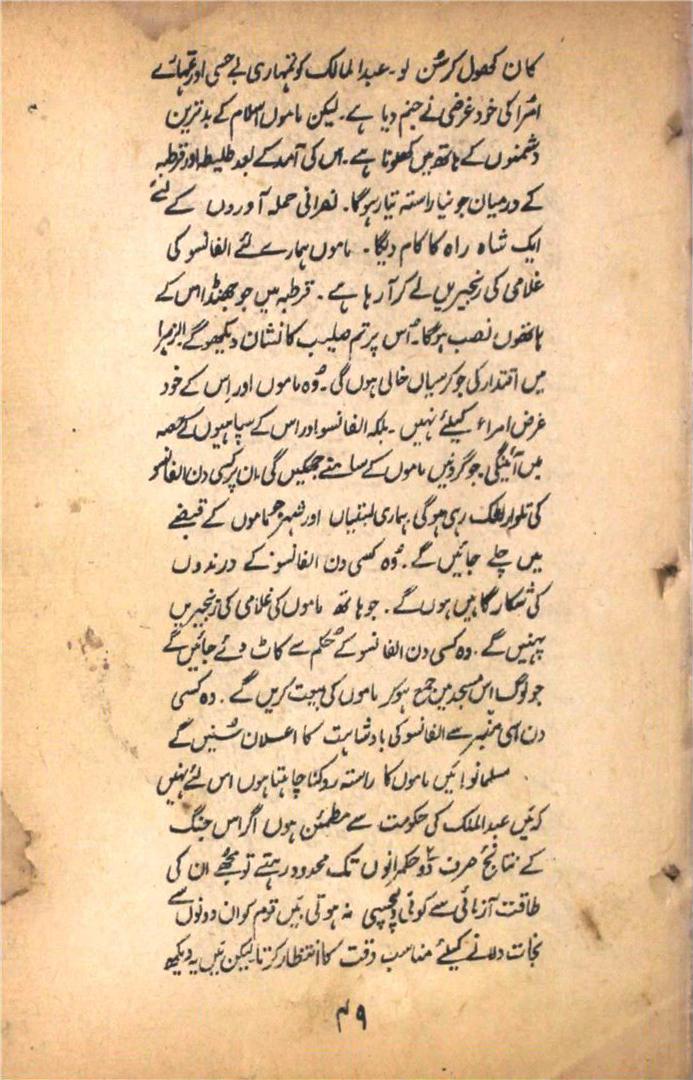 کان کھول کر سُن لو۔ عبدالمالک کو تمہاری بے حسی اور تمہارے
امُرا کی خود غرضی نے جنم دیا ہے۔ لیکن ماموں اسلام کے بدترین
دشمنوں کے ہاتھ میں کھلونا ہے۔ اس کی آمد کے بعد طلیطلہ اور قرطبہ
کے درمیان جو نیا راستہ تیار ہو گا۔ نصرانی حملہ آوروں کے لئے
ایک شاہ راہ کا کام دیگا۔ ماموں ہمارے لئے الفانسو کی
غلامی کی زنجیریں لے کر آ رہا ہے۔ قرطبہ میں جو جھنڈا اس کے
ہاتھوں نصب ہو گا۔ اُس پر تم صلیب کا نشان دیکھو گے الزہرا
میں اقتدار کی جو کرسیاں خالی ہوں گی۔ وُہ ماموں اور اِس کے خود
غرض امراء کیلئے نہیں۔ بلکہ الفانسو اور اس کے سپاہیوں کے حصہ
میں آئیگی۔ جو گردنیں ماموں کے سامنے جھکیں گی۔ ان پر کسی دن الفانسو
کی تلوار لٹک رہی ہو گی ہماری بستیاں اور شہر جو ماموں کے قبضے
میں چلے جائیں گے۔ وُہ کسی دن الفانسو کے درندوں
کی شکار گاہیں ہوں گے۔ جو ہاتھ ماموں کی غلامی کی زنجیریں
پہنیں گے۔ وہ کسی دن الفانسو کے حُکم سے کاٹ دئے جائیں گے
جو لوگ اس مسجد میں جمع ہو کر ماموں کی بیعت کریں گے۔ وہ کسی
دن اسی منبر سے الفانسو کی بادشاہت کا اعلان سُنیں گے
مسلمانو! مَیں ماموں کا راستہ روکنا چاہتا ہوں اس لئے نہیں
کہ مَیں عبدالملک کی حکومت سے مطمئن ہوں اگر اس جنگ
کے نتائج صرف دو حکمرانوں تک محدود رہتے تو مجھے ان کی
طاقت آزمائی سے کوئی دلچسپی نہ ہوتی مَیں قوم کو ان دونوں سے
نجات دلانے کیلئے مناسب وقت کا انتظار کرتا۔ لیکن مَیں یہ دیکھ
۴۹